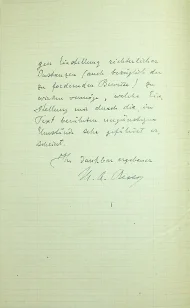 gen Einstellung richterlichen
Instanzen (auch bezüglich der
zu fordernden Beweise) zu
warten vermöge, welche
Stellung mir durch die im
Text berührten ungünstigen
Umstände sehr gefährdet er-
scheint.
Ihr dankbar ergebener